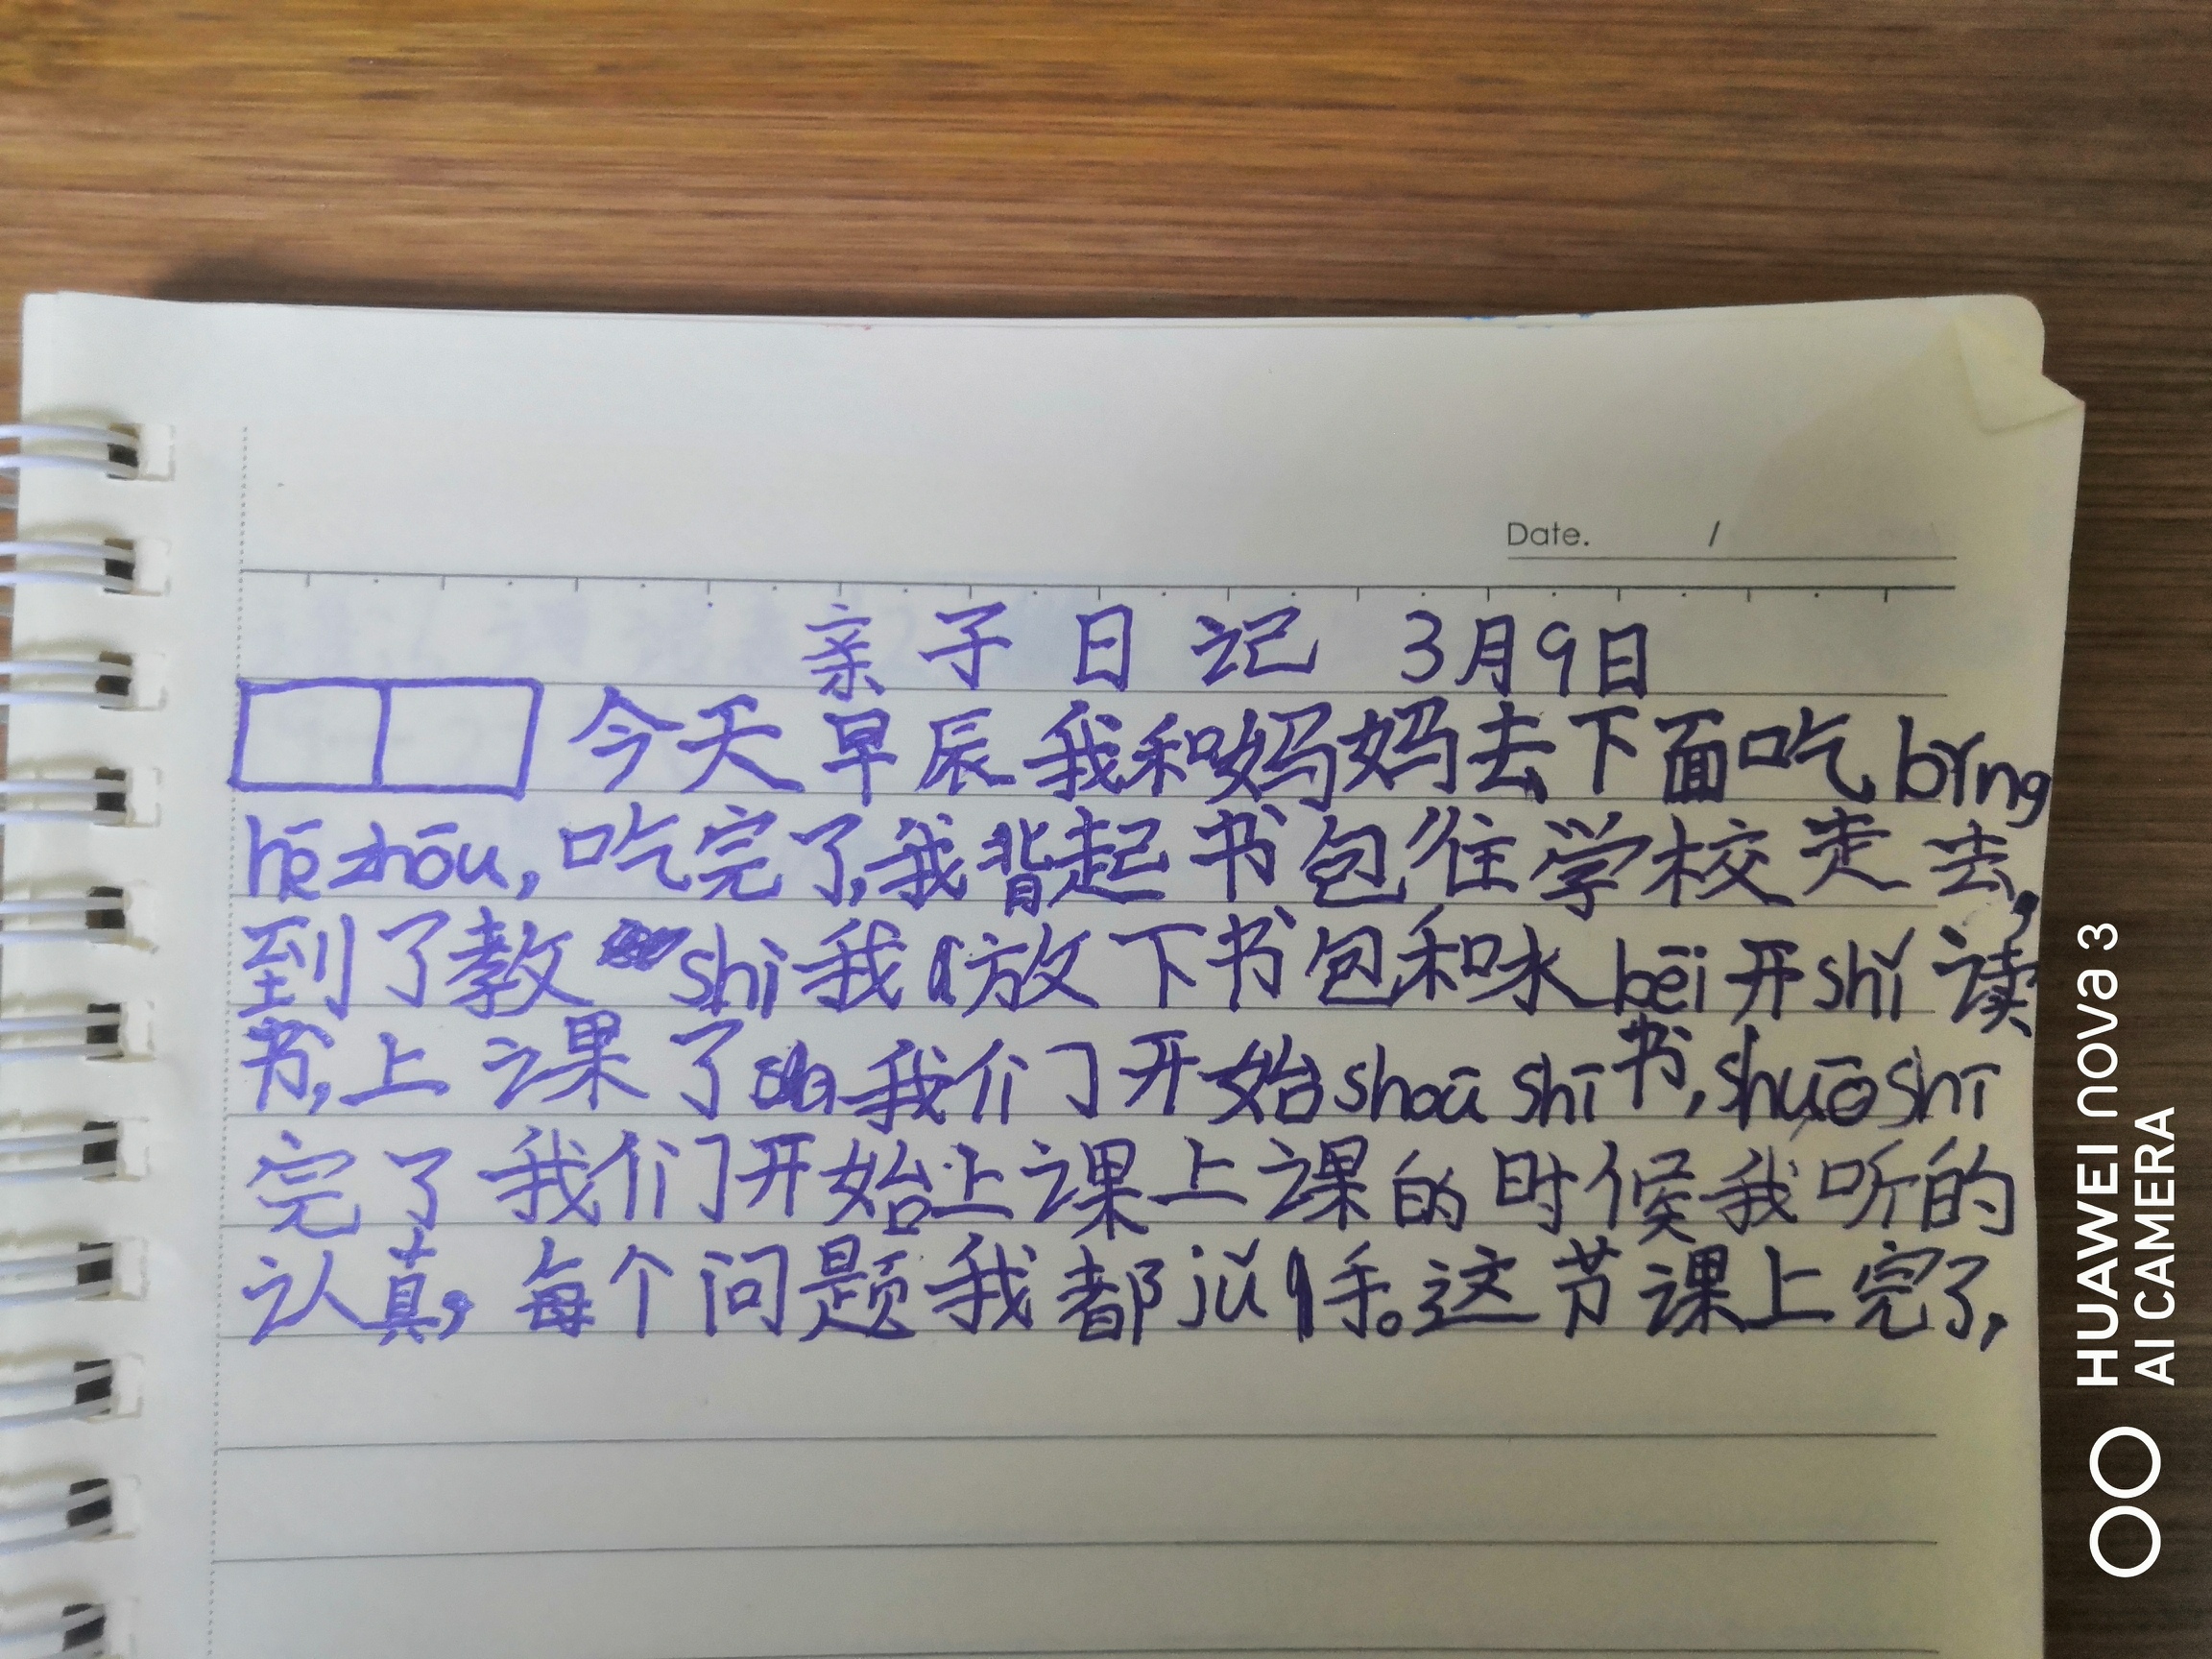 Date. /
亲子日记 3月9日
今天早辰我和妈妈去下面吃bǐng
hē zhōu,吃完了,我背起书包往学校走去,
到了教shì我放下书包和水bēi开shǐ读
书,上课了我们开始shōu shī书,shuō shī
完了我们开始上课上课的时候我听的
认真,每个问题我都jǔ手。这节课上完了,
HUAWEI nova 3
AI CAMERA